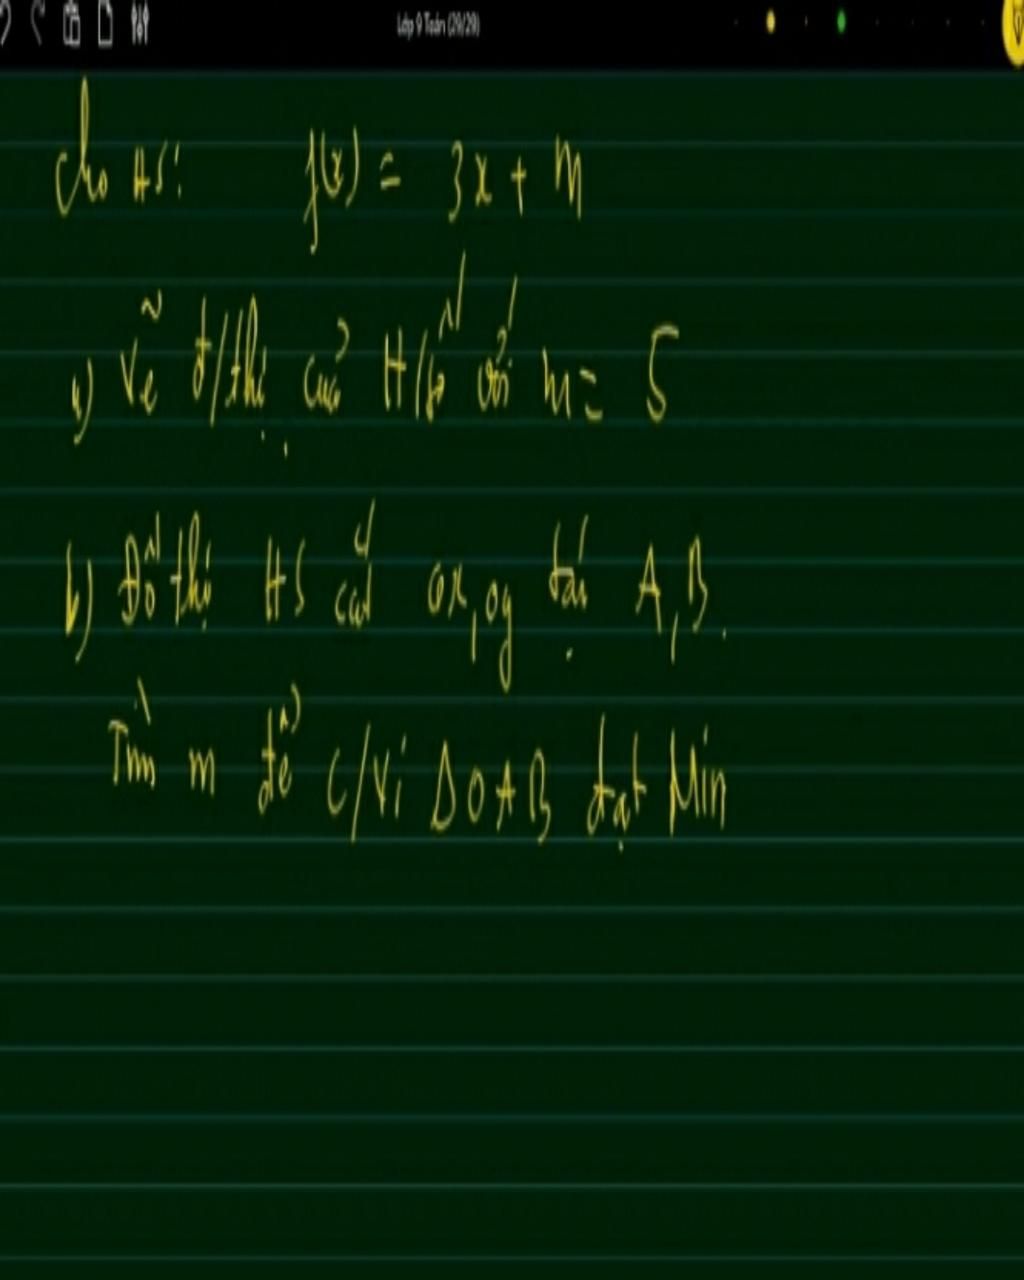 Lớp 9 Toán (29/29)
Cho HS: f(x) = 3x + m
a) Vẽ đ/thị của H/số với m = 5
b) Đồ thị HS cắt ox, oy tại A, B.
Tìm m để C/Vi ΔOAB đạt Min